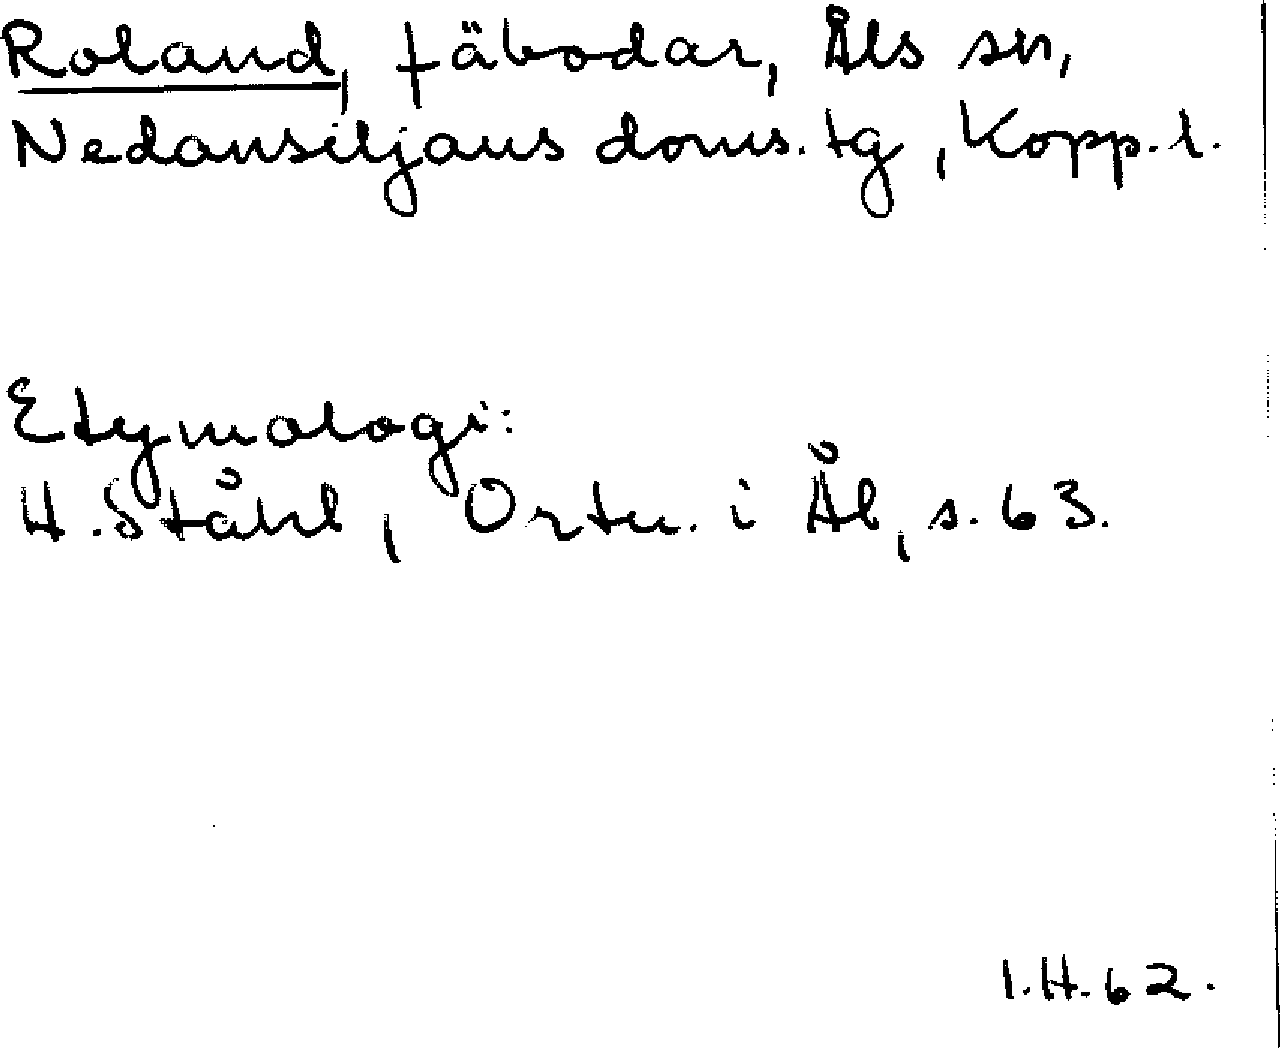 Roland, fäbodar, Åls sn,
Nedansiljans doms. tg, Kopp. l.
Etymologi:
H. Ståhl, Ortn. i Ål, s. 63.
I.H. 62.